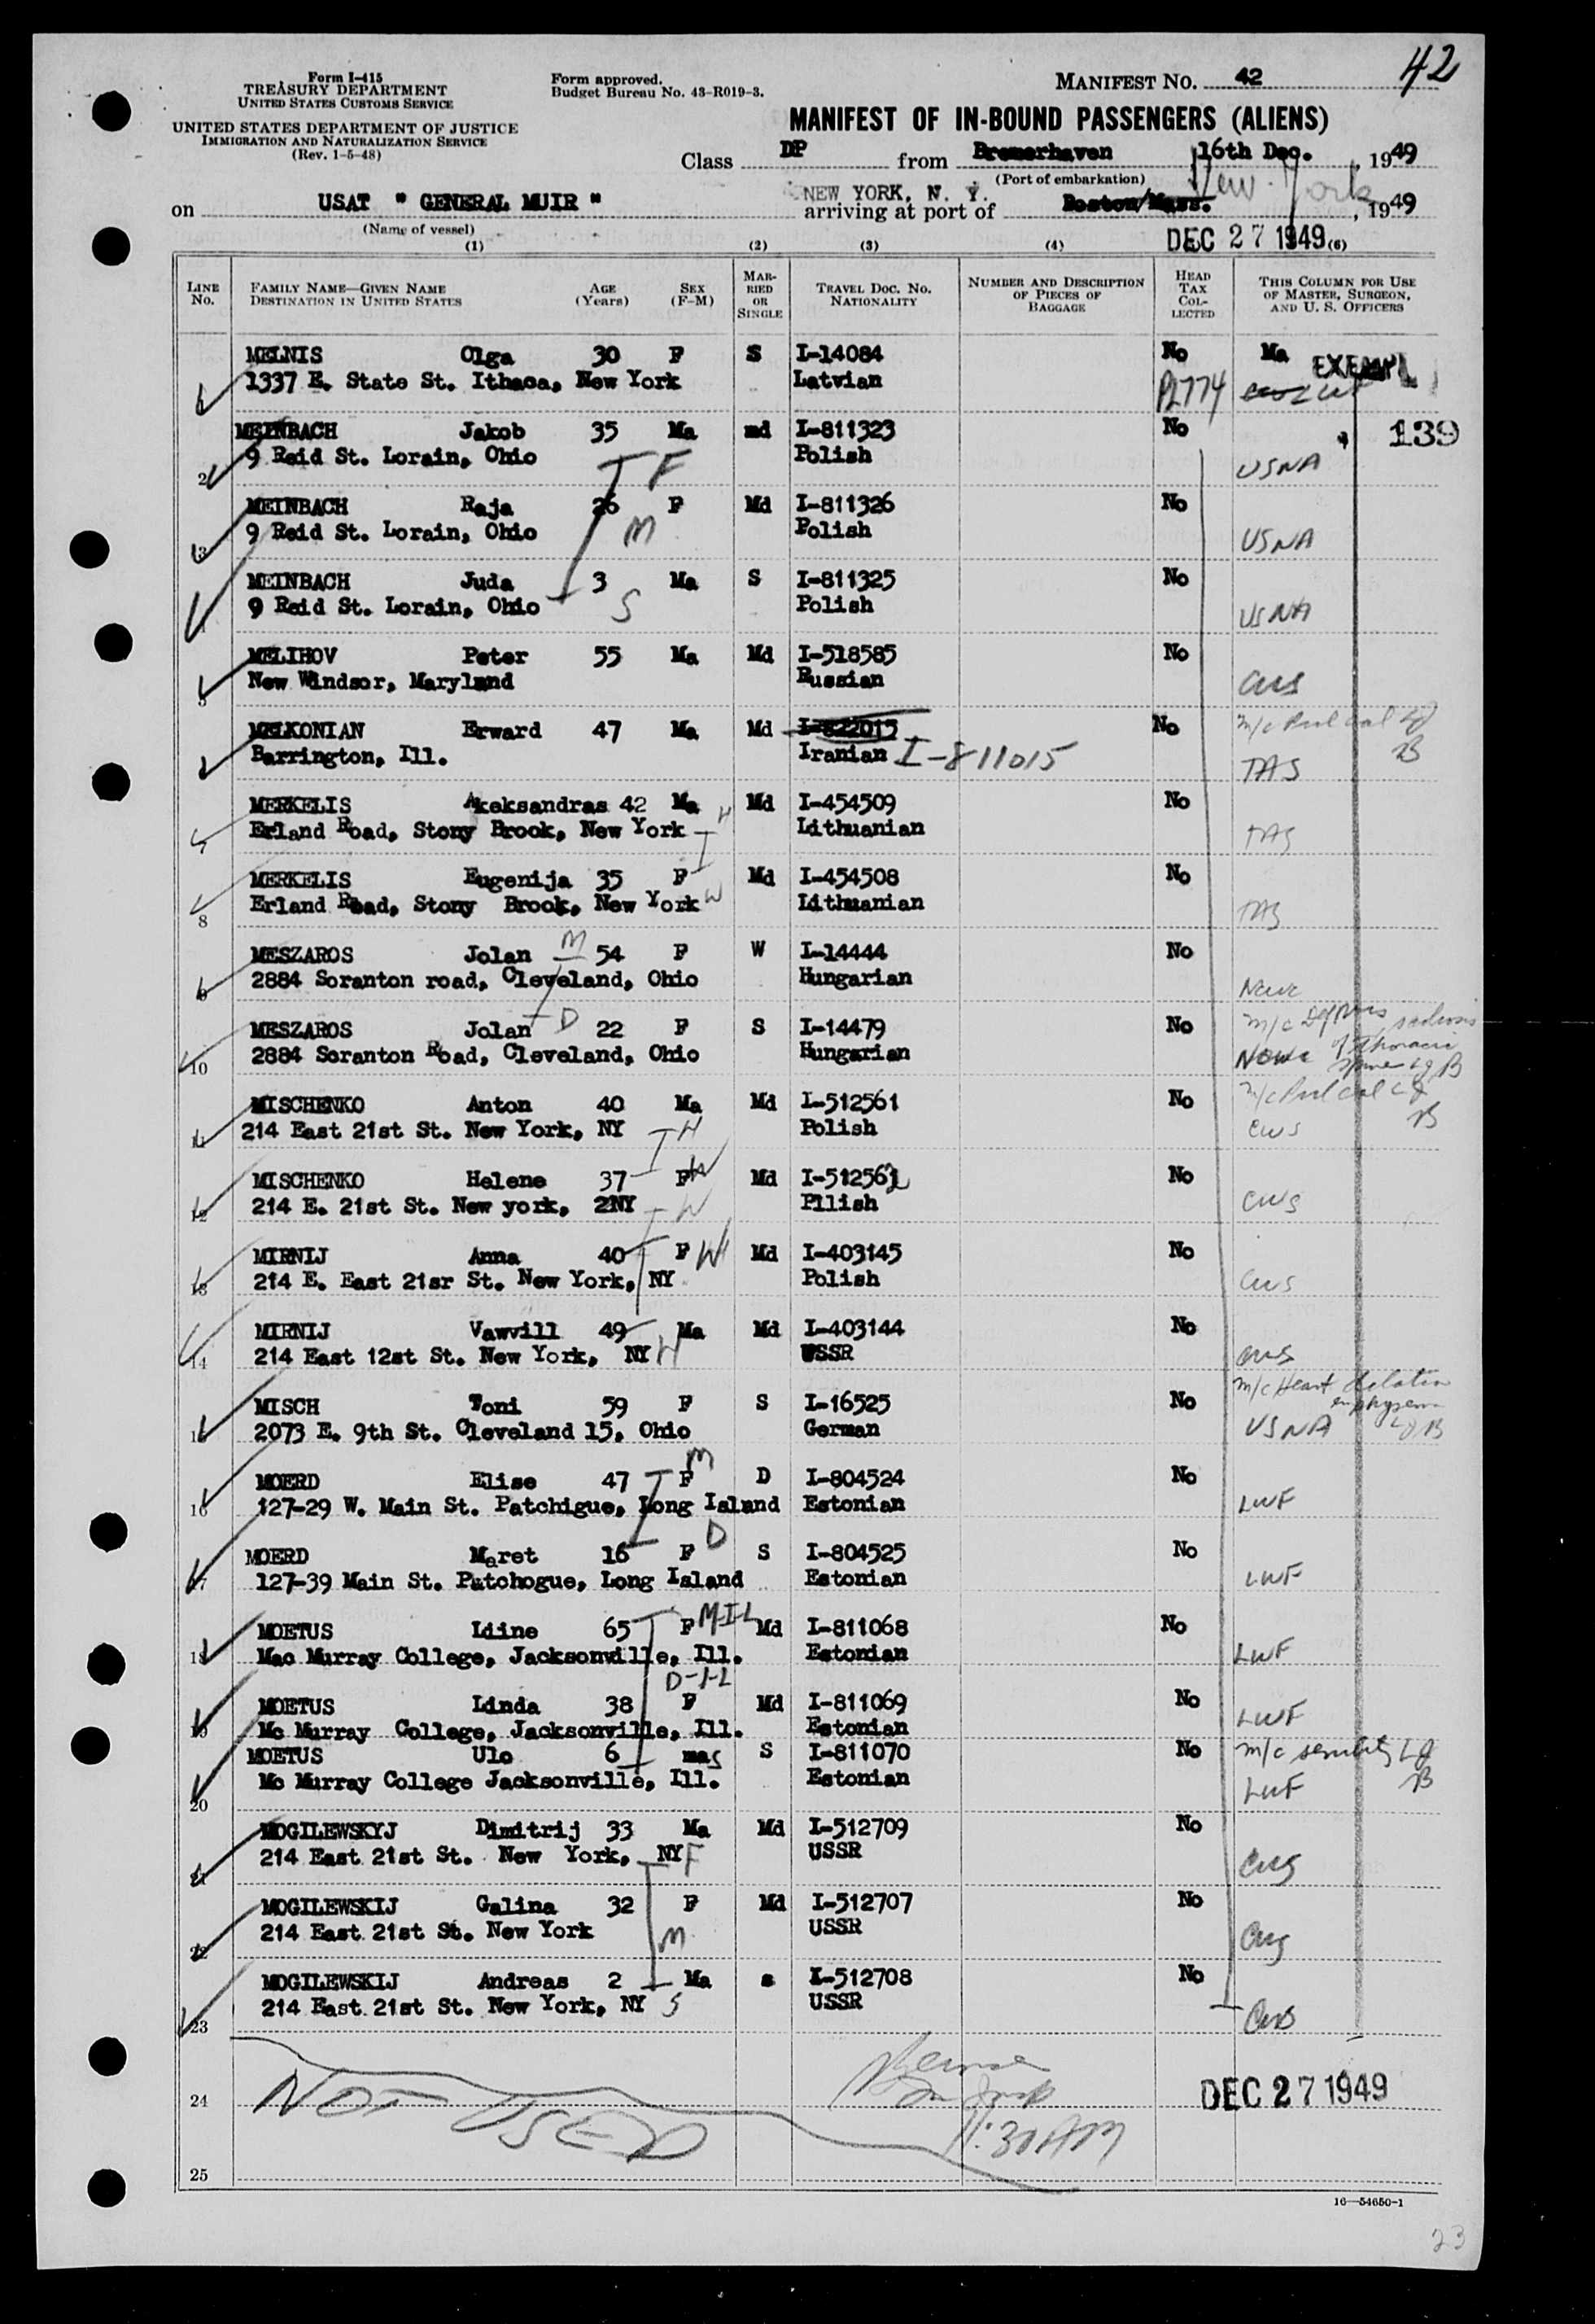 42
Form I-415
TREASURY DEPARTMENT
UNITED STATES CUSTOMS SERVICE
UNITED STATES DEPARTMENT OF JUSTICE
IMMIGRATION AND NATURALIZATION SERVICE
(Rev. 1-5-48)
Form approved.
Budget Bureau No. 43-R019-3.
MANIFEST No. 42
MANIFEST OF IN-BOUND PASSENGERS (ALIENS)
Class DP from Bremerhaven 16th Dec., 1949
(Port of embarkation)
on USAT " GENERAL MUIR "
(Name of vessel)
NEW YORK, N. Y. New York
arriving at port of Boston/Mass., 1949
DEC 27 1949
(1) (2) (3) (4) (6)
LINE No. FAMILY NAME—GIVEN NAME DESTINATION IN UNITED STATES AGE (Years) SEX (F-M) MARRIED OR SINGLE TRAVEL DOC. NO. NATIONALITY NUMBER AND DESCRIPTION OF PIECES OF BAGGAGE HEAD TAX COLLECTED THIS COLUMN FOR USE OF MASTER, SURGEON, AND U. S. OFFICERS
MELNIS Olga 30 F S I-14084 No Ma EXEMPT
1337 E. State St. Ithaca, New York Latvian PL774
MEINBACH Jakob 35 Ma md I-811323 No 139
2 9 Reid St. Lorain, Ohio F Polish USNA
MEINBACH Raja 26 F Md I-811326 No
3 9 Reid St. Lorain, Ohio M Polish USNA
MEINBACH Juda 3 Ma S I-811325 No
9 Reid St. Lorain, Ohio S Polish USNA
MELIHOV Peter 55 Ma Md I-518585 No
5 New Windsor, Maryland Russian CWS
MELKONIAN Erward 47 Ma Md I-822015 No
Barrington, Ill. Iranian I-811015 TAS B
MERKELIS Akeksandras 42 Ma H Md I-454509 No
7 Erland Road, Stony Brook, New York Lithuanian TAS
MERKELIS Eugenija 35 F Md I-454508 No
8 Erland Road, Stony Brook, New York W Lithuanian TAS
MESZAROS Jolan M 54 F W I-14444 No
9 2884 Soranton road, Cleveland, Ohio Hungarian
MESZAROS Jolan D 22 F S I-14479 No
10 2884 Soranton Road, Cleveland, Ohio Hungarian of thoracic spine B
MISCHENKO Anton 40 Ma Md I-512561 No
11 214 East 21st St. New York, NY H Polish CWS B
MISCHENKO Helene 37 F W Md I-512562 No
12 214 E. 21st St. New york, 2NY W Pllish CWS
MIRNIJ Anna 40 F W Md I-403145 No
13 214 E. East 21sr St. New York, NY Polish CWS
MIRNIJ Vawvill 49 Ma Md I-403144 No
14 214 East 12st St. New York, NY H USSR CWS
MISCH Toni 59 F S I-16525 No m/c Heart dilation emphysema
2073 E. 9th St. Cleveland 15, Ohio German USNA B
MOERD Elise 47 F M D I-804524 No
16 127-29 W. Main St. Patchigue, Long Island Estonian LWF
MOERD Maret 16 F D S I-804525 No
127-39 Main St. Patchogue, Long Island Estonian LWF
MOETUS Idine 65 F M-I-L Md I-811068 No
Mac Murray College, Jacksonville, Ill. Estonian LWF
MOETUS Linda 38 F D-I-L Md I-811069 No
Mc Murray College, Jacksonville, Ill. Estonian LWF
MOETUS Ulo 6 mas S I-811070 No
20 Mc Murray College Jacksonville, Ill. Estonian LWF B
MOGILEWSKYJ Dimitrij 33 Ma Md I-512709 No
214 East 21st St. New York, NY F USSR CWS
MOGILEWSKIJ Galina 32 F Md I-512707 No
22 214 East 21st St. New York M USSR CWS
MOGILEWSKIJ Andreas 2 Ma s I-512708 No
23 214 East 21st St. New York, NY S USSR CWS
24 NOT USED
11:30 AM
DEC 27 1949
25
16—54650-1
23